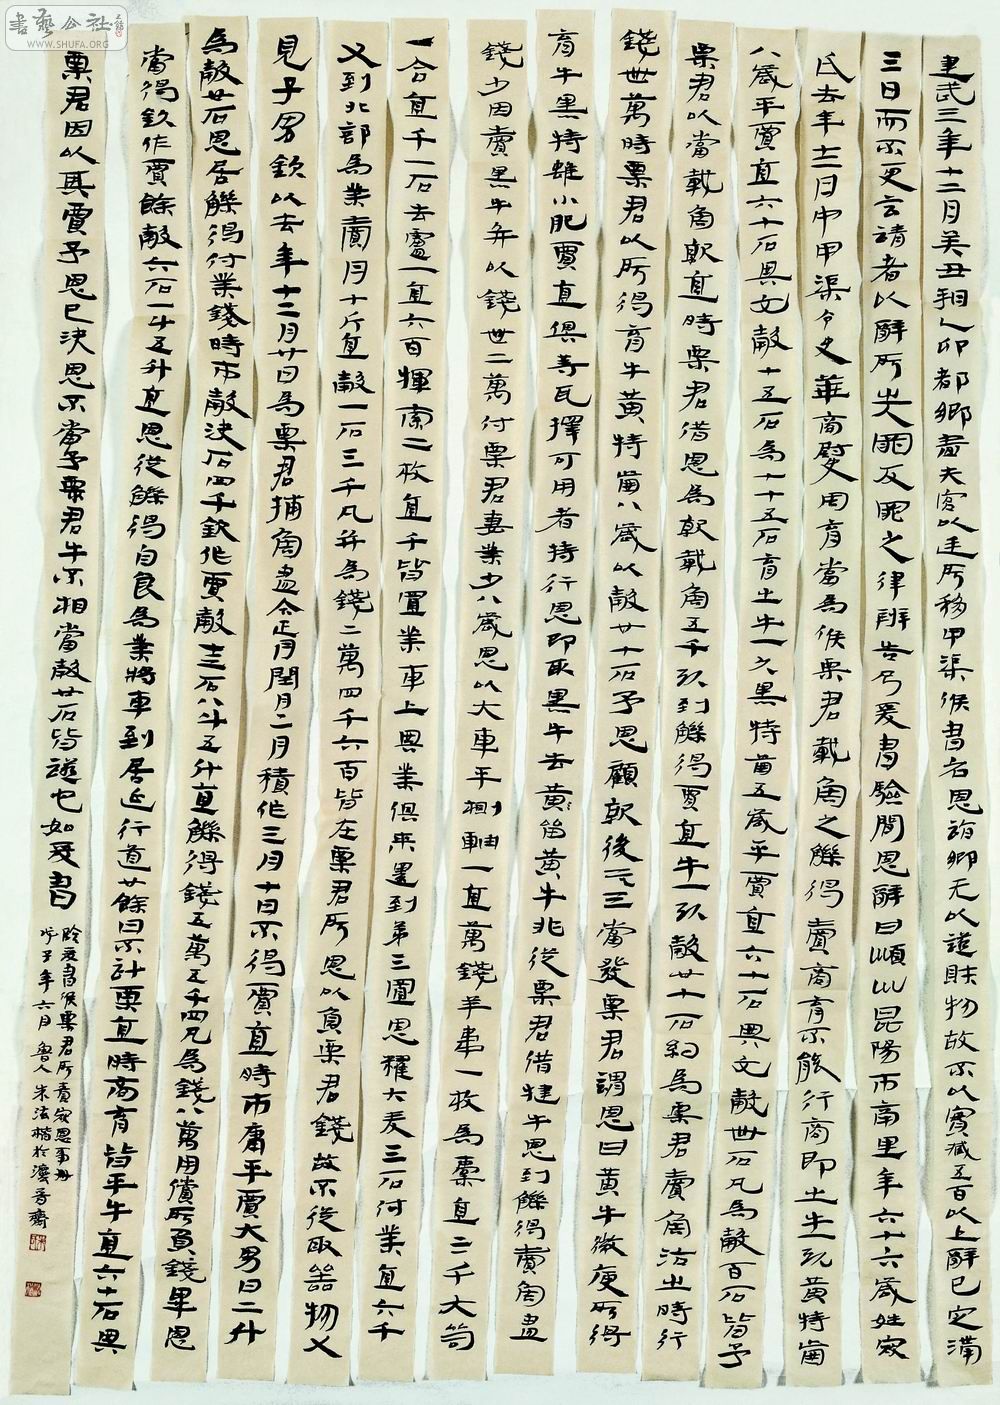 建武三年十二月癸丑朔乙卯都鄉嗇夫宮以廷所移甲渠候書召恩詣鄉先以證財物故不以實臧五百以上辭已定滿
三日而不更言請者以辭所出入罪反罪之律辨告乃爰書驗問恩辭曰潁川昆陽市南里年六十六歲姓寇
氏去年十二月中甲渠令史華商尉史周育當為候粟君載魚之觻得賣商育不能行商即出牛一頭黃特齒
八歲平賈直六十石與交穀十五石為七十五石育出牛一頭黑特齒五歲平賈直六十石與交穀卌石凡為穀百石皆予
粟君以當載魚就直時粟君借恩為就載魚五千頭到觻得賈直牛一頭穀廿七石約為粟君賣魚沽出時行
錢卌萬時粟君以所得育牛黃特齒八歲以穀廿七石予恩顧就後二三當發粟君謂恩曰黃牛微庾所得
育牛黑特雖小肥賈直俱等耳擇可用者持行恩即取黑牛去黃留黃牛非從粟君借牛恩到觻得賣魚盡
錢少因賣黑牛并以錢卅二萬付粟君妻業少八歲恩以大車半側軸一直萬錢羊韋一枚為橐直三千大笥
一合直千一石去盧一直六百索二枚直千皆置業車上與業俱來還到第三置恩糴大麥二石付業直六千
又到北部為業賣肉十斤直穀一石三千凡并為錢二萬四千六百皆在粟君所恩以負粟君錢故不從取器物又
見子男欽以去年十二月廿日為粟君捕魚盡今正月閏月二月積作三月十日不得賈直時市庸平賈大男日二斗
為穀廿石恩居觻得付業錢時市穀決石四千欽作賈穀十三石八斗五升直觻得錢五萬五千四凡為錢八萬用償所負錢畢恩
當得欽作賈餘穀六石一斗五升直恩從觻得自食為業將車到居延行道廿餘日不計賈直時商育皆平牛直六十石與
粟君因以其賈予恩已決恩不當予粟君牛不相當穀廿石皆證也如爰書
臨爰書候粟君所責寇恩事冊
戊子年六月魯人朱法楷於濯音齋